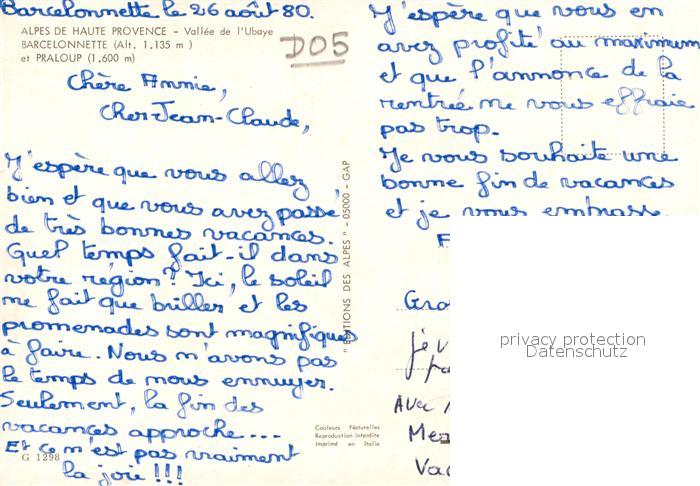 Barcelonnette le 26 août 80.
ALPES DE HAUTE PROVENCE - Vallée de l'Ubaye
BARCELONNETTE (Alt. 1.135 m)
et PRALOUP (1.600 m)
D05
Chère Annie,
Cher Jean-Claude,
J'espère que vous allez
bien et que vous avez passé
de très bonnes vacances.
Quel temps fait-il dans
votre région? Ici, le soleil
ne fait que briller et les
promenades sont magnifiques
à faire. Nous n'avons pas
le temps de nous ennuyer.
Seulement, la fin des
vacances approche...
Et ce n'est pas vraiment
la joie!!!
G 1298
"EDITIONS DES ALPES" - 05000 - GAP
Couleurs Naturelles
Reproduction interdite
Imprimé en Italie
J'espère que vous en
avez profité au maximum
et que l'annonce de la
rentrée ne vous effraie
pas trop.
Je vous souhaite une
bonne fin de vacances
et je vous embrasse
privacy protection
Datenschutz
Avec